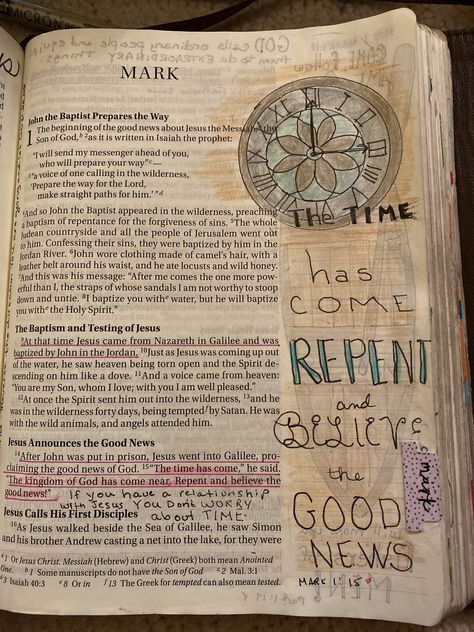 MICRON
GOD calls ordinary people and equips
them to do EXTRAORDINARY Things
COME follow
MARK
John the Baptist Prepares the Way
1 The beginning of the good news about Jesus the Messiah, the
Son of God,b 2as it is written in Isaiah the prophet:
“I will send my messenger ahead of you,
who will prepare your way”c—
3“a voice of one calling in the wilderness,
‘Prepare the way for the Lord,
make straight paths for him.’ ”d
4And so John the Baptist appeared in the wilderness, preaching
a baptism of repentance for the forgiveness of sins. 5The whole
Judean countryside and all the people of Jerusalem went out
to him. Confessing their sins, they were baptized by him in the
Jordan River. 6John wore clothing made of camel's hair, with a
leather belt around his waist, and he ate locusts and wild honey.
7And this was his message: “After me comes the one more pow-
erful than I, the straps of whose sandals I am not worthy to stoop
down and untie. 8I baptize you withe water, but he will baptize
you withe the Holy Spirit.”
The Baptism and Testing of Jesus
9At that time Jesus came from Nazareth in Galilee and was
baptized by John in the Jordan. 10Just as Jesus was coming up out
of the water, he saw heaven being torn open and the Spirit de-
scending on him like a dove. 11And a voice came from heaven:
“You are my Son, whom I love; with you I am well pleased.”
12At once the Spirit sent him out into the wilderness, 13and he
was in the wilderness forty days, being temptedf by Satan. He was
with the wild animals, and angels attended him.
Jesus Announces the Good News
14After John was put in prison, Jesus went into Galilee, pro-
claiming the good news of God. 15“The time has come,” he said.
“The kingdom of God has come near. Repent and believe the
good news!”
If you have a relationship
with Jesus You Don't WORRY
about TIME.
Jesus Calls His First Disciples
16As Jesus walked beside the Sea of Galilee, he saw Simon
and his brother Andrew casting a net into the lake, for they were
a 1 Or Jesus Christ. Messiah (Hebrew) and Christ (Greek) both mean Anointed
One. b 1 Some manuscripts do not have the Son of God c 2 Mal. 3:1
d 3 Isaiah 40:3 e 8 Or in f 13 The Greek for tempted can also mean tested.
The TIME
has
COME
REPENT
and
BELIEVE
the
GOOD
NEWS
MARK 1:15
mark